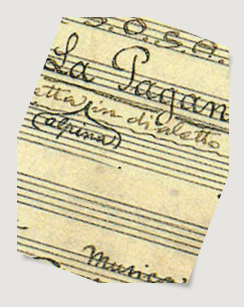 S.O.S.A.
La Pagan
etta in dialetto
(alpina)
Musica